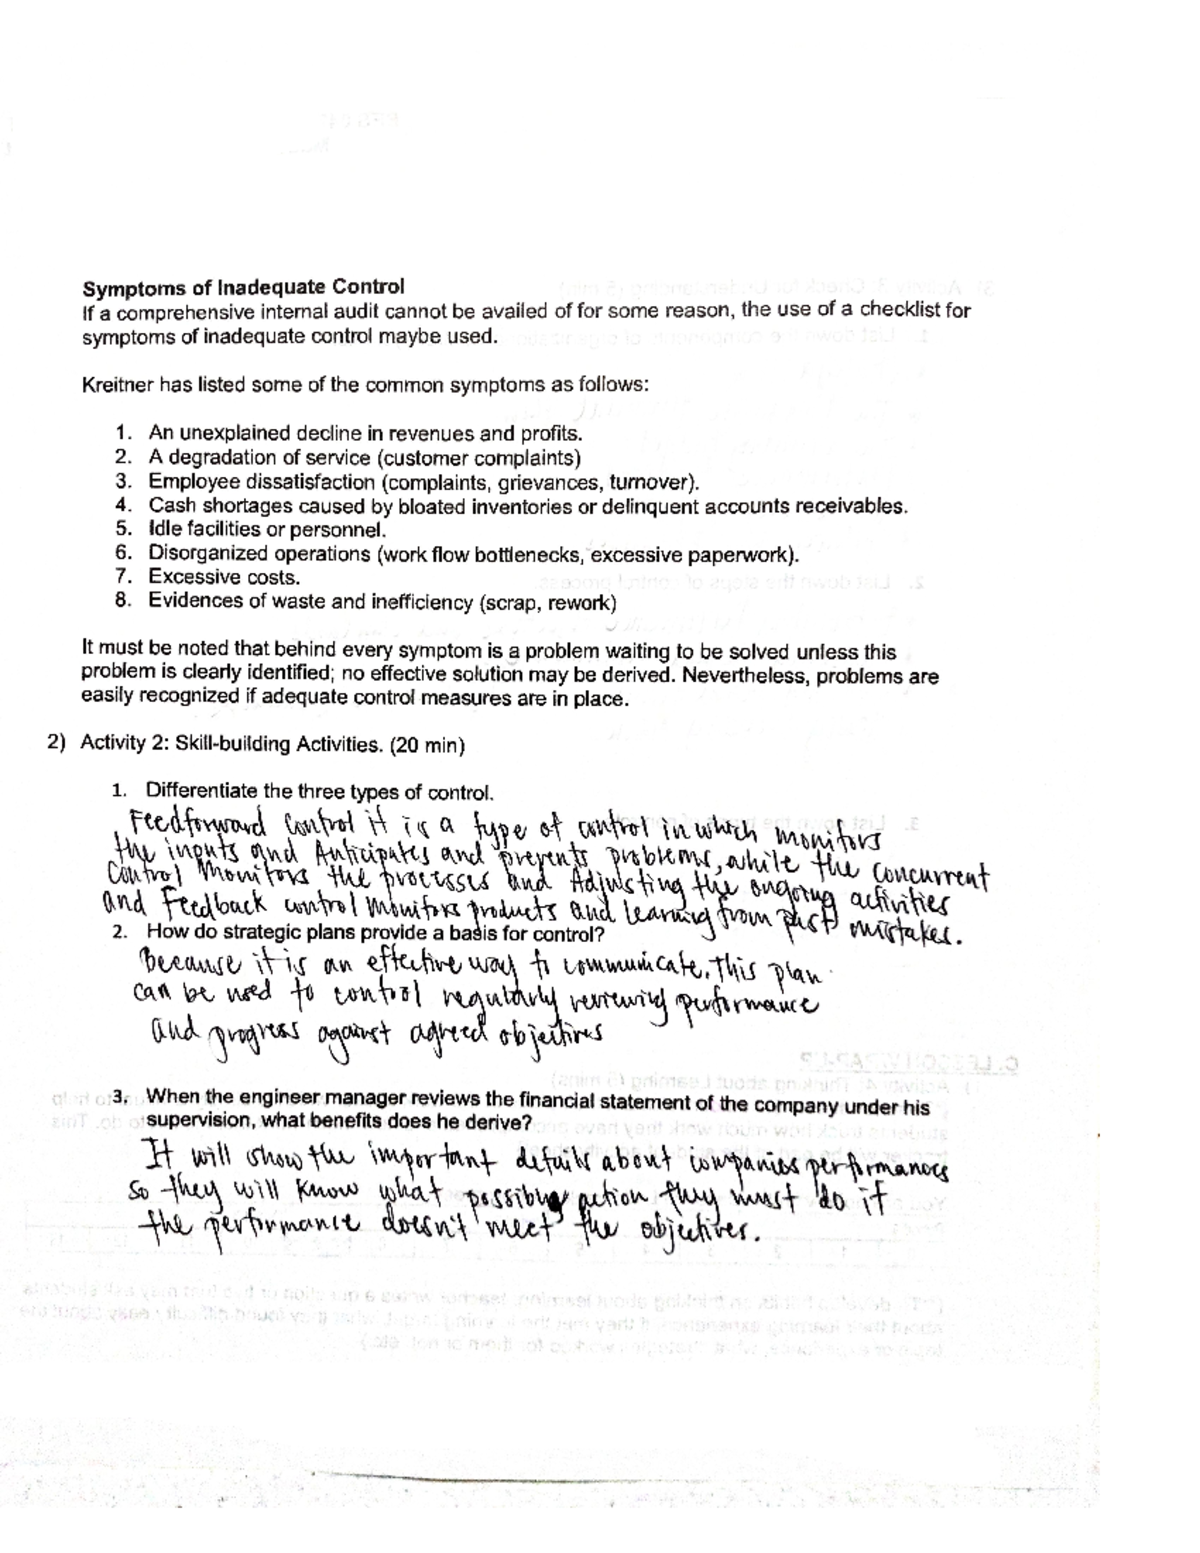 Symptoms of Inadequate Control
If a comprehensive internal audit cannot be availed of for some reason, the use of a checklist for
symptoms of inadequate control maybe used.
Kreitner has listed some of the common symptoms as follows:
1. An unexplained decline in revenues and profits.
2. A degradation of service (customer complaints)
3. Employee dissatisfaction (complaints, grievances, turnover).
4. Cash shortages caused by bloated inventories or delinquent accounts receivables.
5. Idle facilities or personnel.
6. Disorganized operations (work flow bottlenecks, excessive paperwork).
7. Excessive costs.
8. Evidences of waste and inefficiency (scrap, rework)
It must be noted that behind every symptom is a problem waiting to be solved unless this
problem is clearly identified; no effective solution may be derived. Nevertheless, problems are
easily recognized if adequate control measures are in place.
2) Activity 2: Skill-building Activities. (20 min)
1. Differentiate the three types of control.
Feedforward control it is a type of control in which monitors
the inputs and Anticipates and prevents problems, while the concurrent
Control Monitors the processes and Adjusting the ongoing activities
and Feedback control monitors products and learning from past mistakes.
2. How do strategic plans provide a basis for control?
Because it is an effective way to communicate. This plan
can be used to control regularly reviewing performance
and progress against agreed objectives
3. When the engineer manager reviews the financial statement of the company under his
supervision, what benefits does he derive?
It will show the important details about companies performances
so they will know what possible action they must do if
the performance doesn't meet the objectives.